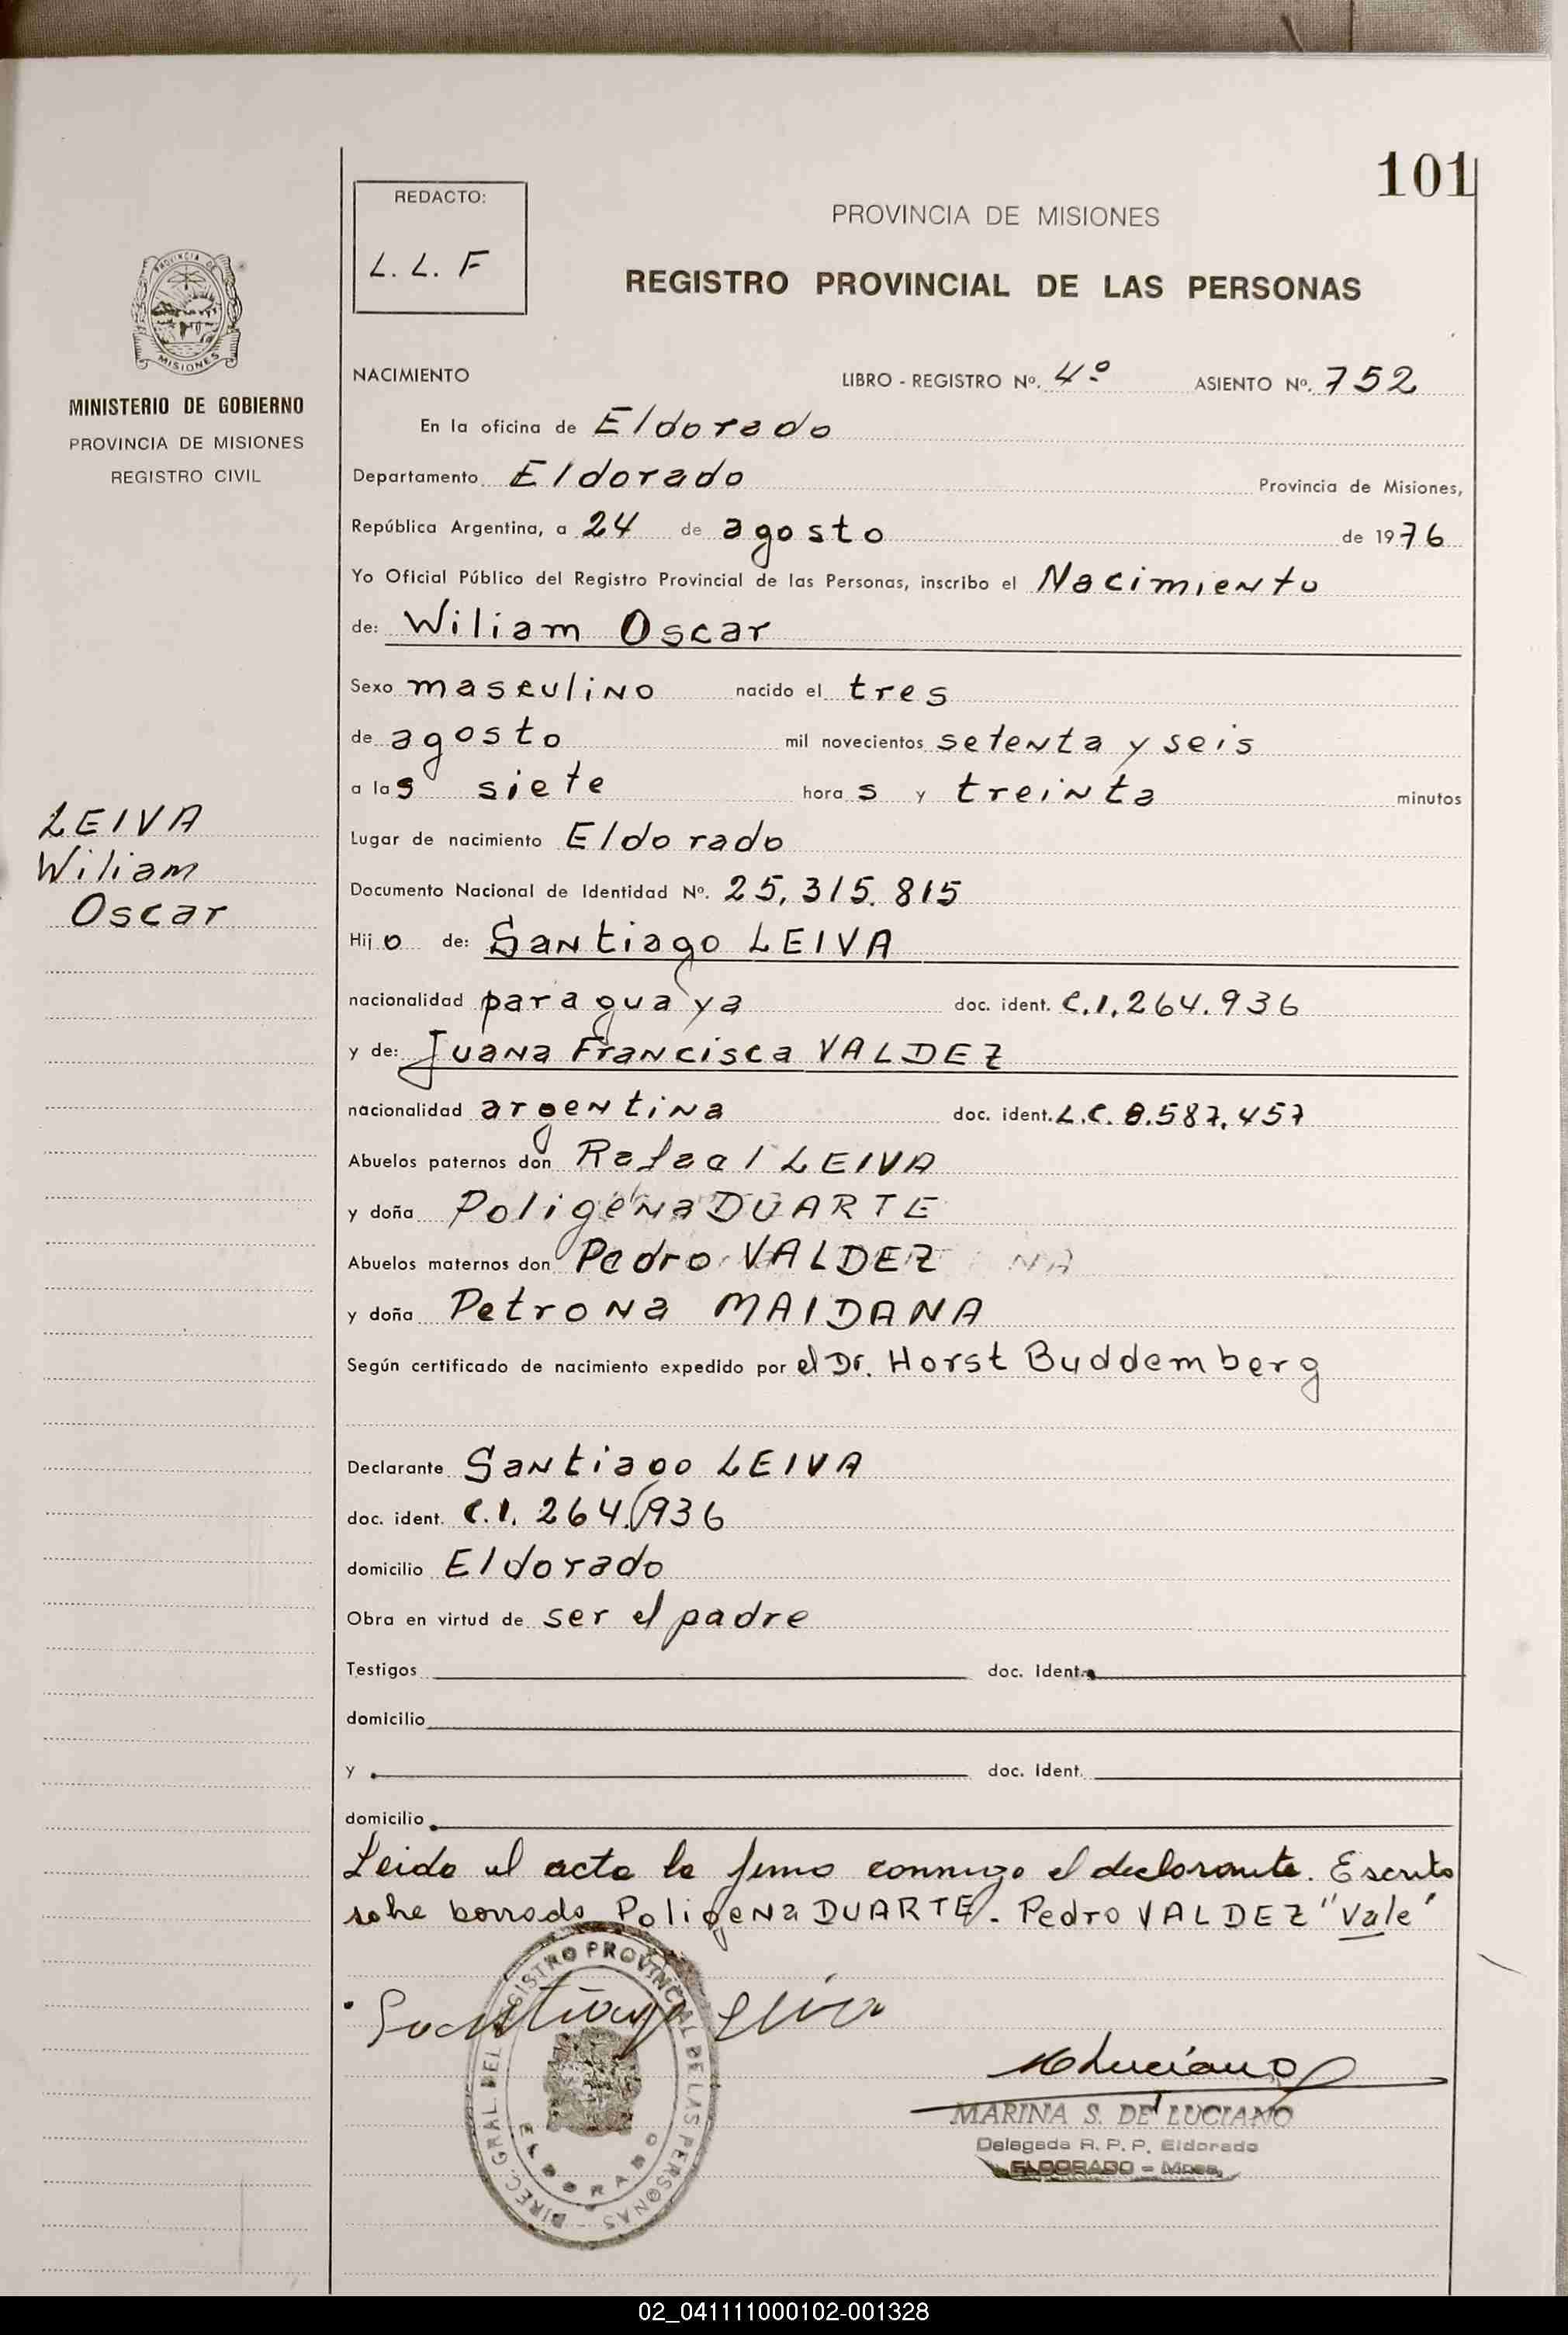 101
REDACTO:
L. L. F
PROVINCIA DE MISIONES
REGISTRO PROVINCIAL DE LAS PERSONAS
PROVINCIA DE
MISIONES
MINISTERIO DE GOBIERNO
PROVINCIA DE MISIONES
REGISTRO CIVIL
NACIMIENTO LIBRO - REGISTRO Nº. 4º ASIENTO Nº. 752
En la oficina de Eldorado
Departamento Eldorado Provincia de Misiones,
República Argentina, a 24 de agosto de 1976
Yo Oficial Público del Registro Provincial de las Personas, inscribo el Nacimiento
de: Wiliam Oscar
Sexo masculino nacido el tres
de agosto mil novecientos setenta y seis
a las siete horas y treinta minutos
LEIVA
Wiliam
Oscar
Lugar de nacimiento Eldorado
Documento Nacional de Identidad Nº. 25.315.815
Hijo de: Santiago LEIVA
nacionalidad paraguaya doc. ident. C.I. 264.936
y de: Juana Francisca VALDEZ
nacionalidad argentina doc. ident. L.C. 8.587.457
Abuelos paternos don Rafael LEIVA
y doña Poligena DUARTE
Abuelos maternos don Pedro VALDEZ
y doña Petrona MAIDANA
Según certificado de nacimiento expedido por el Dr. Horst Buddemberg
Declarante Santiago LEIVA
doc. ident. C.I. 264.936
domicilio Eldorado
Obra en virtud de ser el padre
Testigos doc. Ident.
domicilio
y doc. Ident.
domicilio
Leida el acta la firmo conmigo el declarante. Escrito
sobre borrado Poligena DUARTE. Pedro VALDEZ "Vale"
Santiago Leiva
DIREC. GRAL. DEL REGISTRO PROVINCIAL DE LAS PERSONAS
ELDORADO
MLuciano
MARINA S. DE LUCIANO
Delegada R. P. P. Eldorado
ELDORADO - Mnes.
02_041111000102-001328